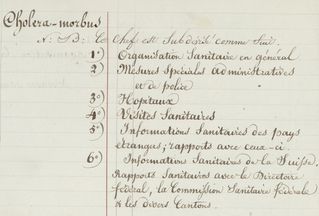 Cholera-morbus
N: B: Ce Chef est Subdivisé comme suit.
1°) Organisation Sanitaire en général
2) Mesures Spéciales Administratives
et de police
3°) Hopitaux
4°) Visites Sanitaires
5°) Informations Sanitaires des pays
étrangers; rapports avec ceux-ci.
6°) Informations Sanitaires de la Suisse.
Rapports Sanitaires avec le Directoire
fédéral, la Commission Sanitaire fédérale
& les divers Cantons.